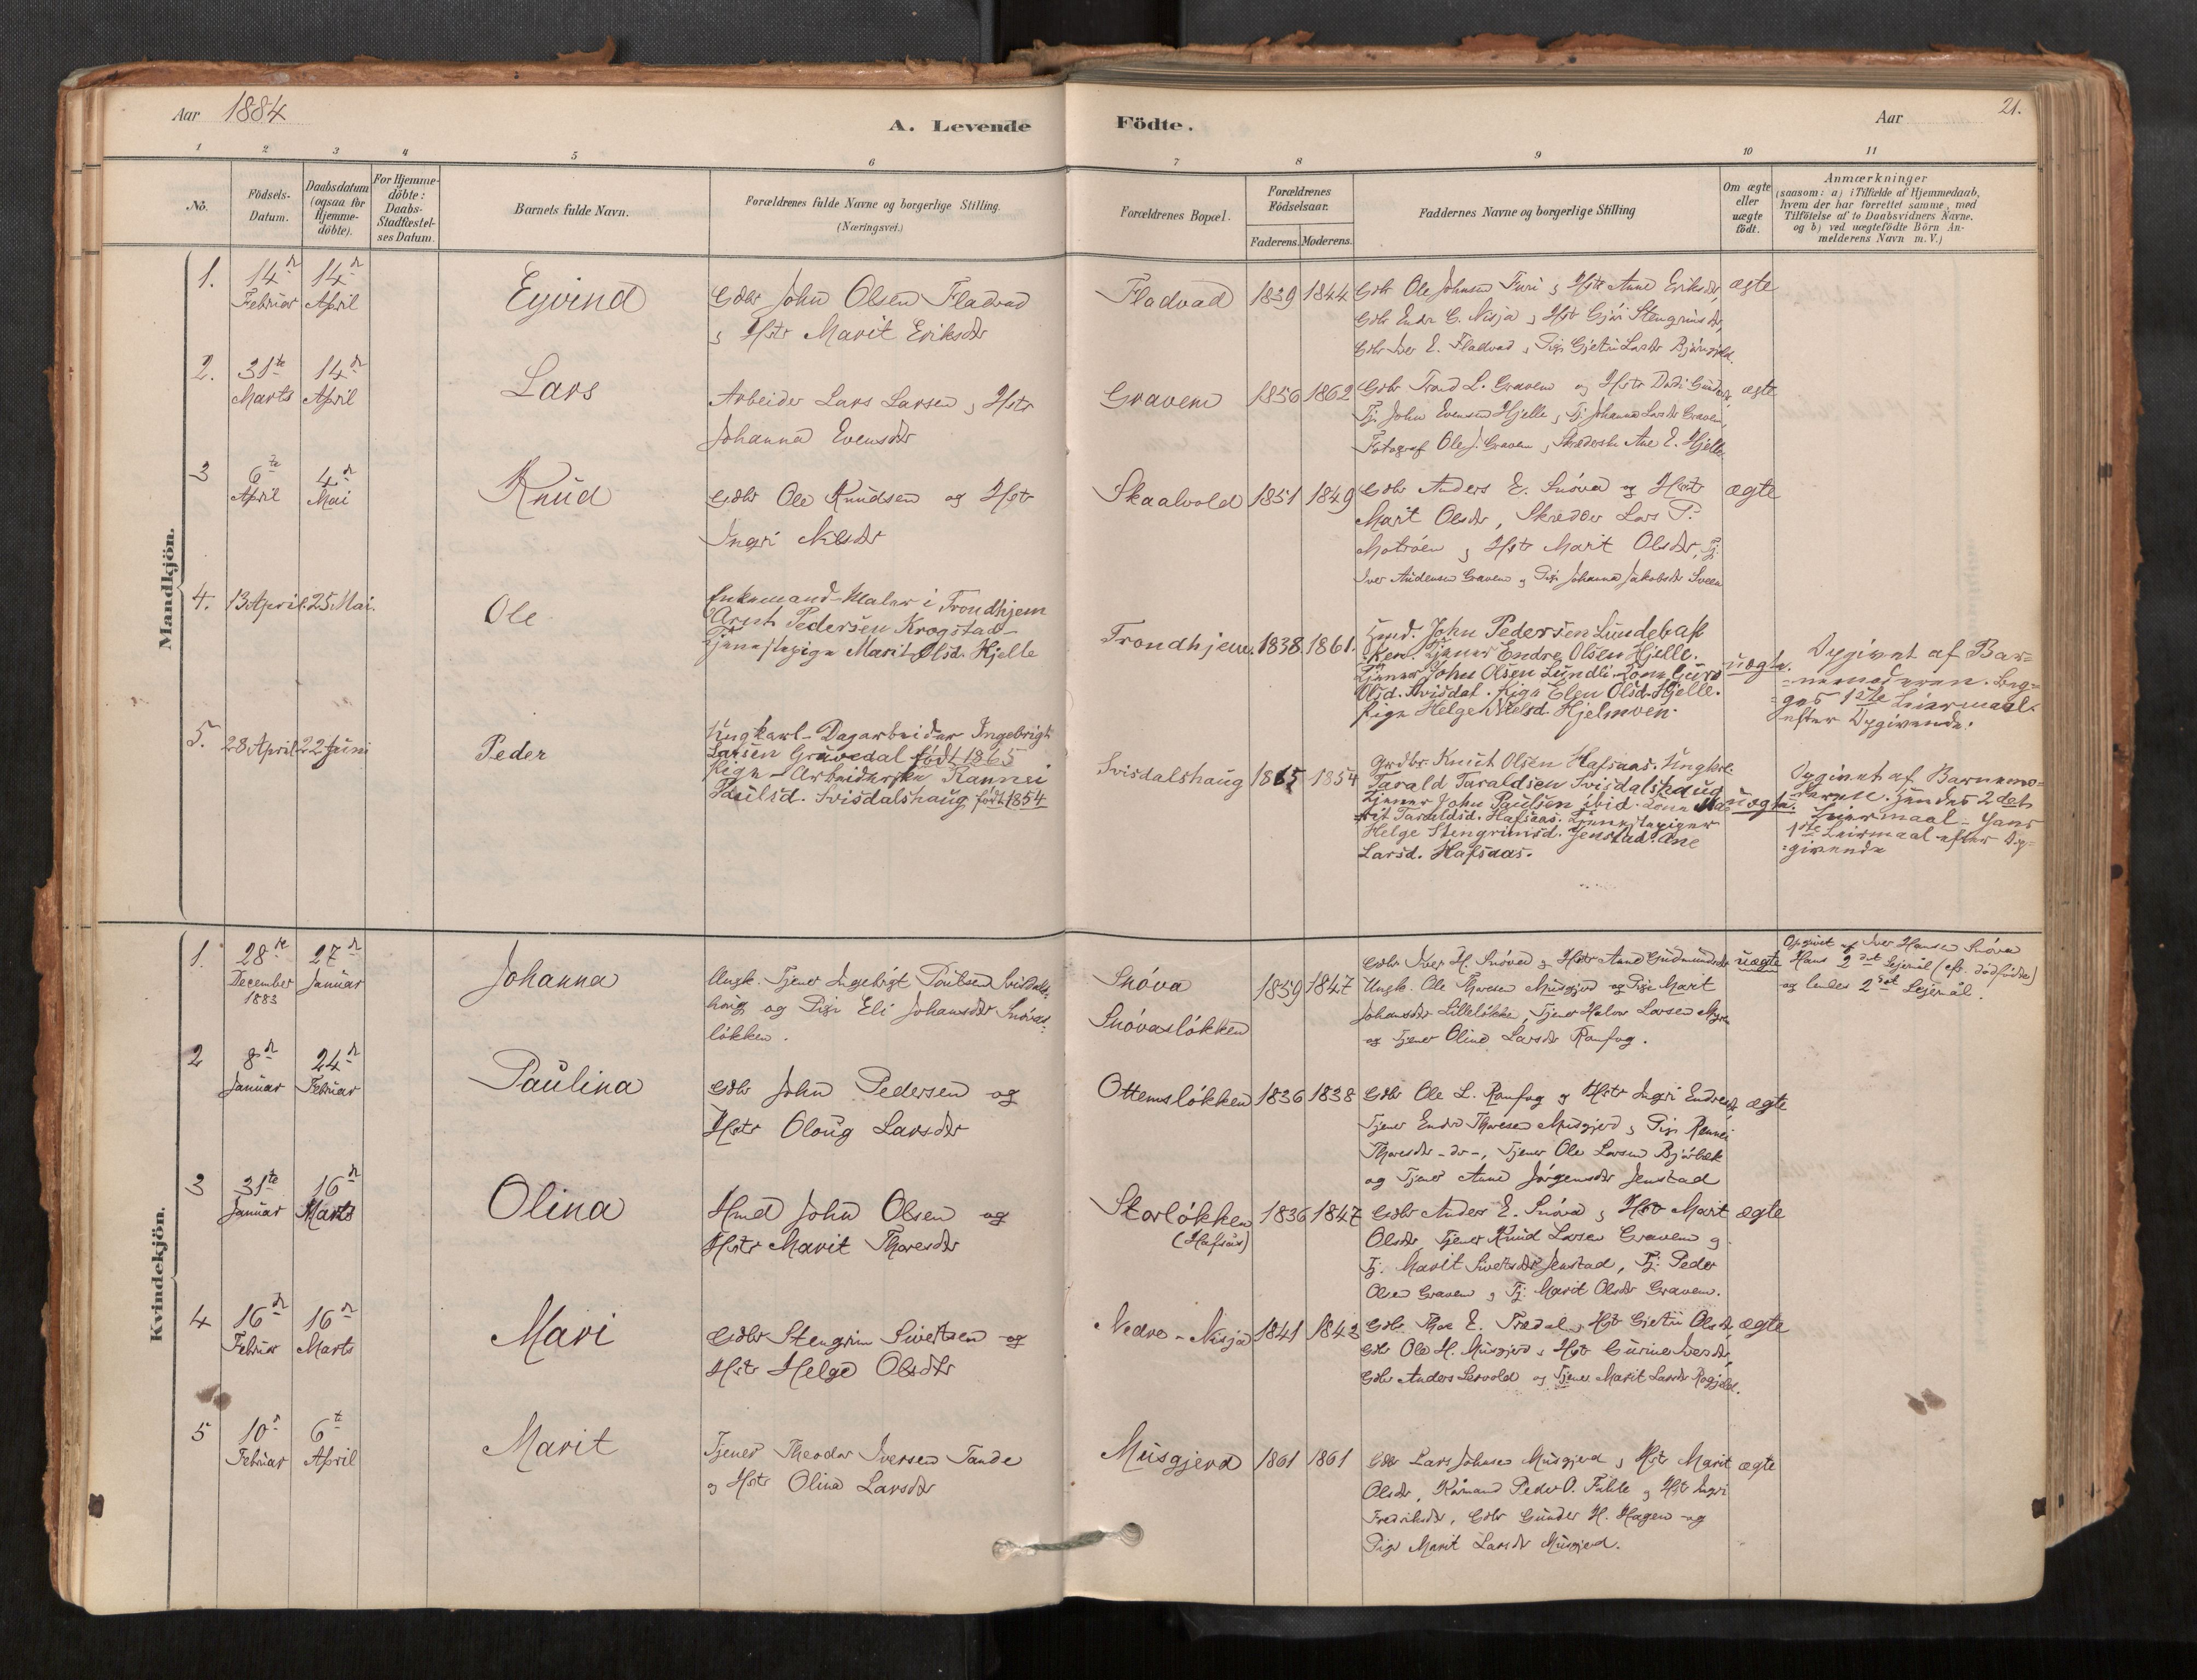 Aar 1884
A. Levende Födte.
Aar
21.
1 2 3 4 5 6 7 8 9 10 11
No.
Födsels-
Datum.
Daabsdatum
(ogsaa for
Hjemme-
döbte).
For Hjemme-
döbte:
Daabs-
Stadfæstel-
ses Datum.
Barnets fulde Navn.
Forældrenes fulde Navne og borgerlige Stilling.
(Næringsvei.)
Forældrenes Bopæl.
Forældrenes
Födselsaar.
Faderens. Moderens.
Faddernes Navne og borgerlige Stilling
Om ægte
eller
uægte
födt.
Anmærkninger
(saasom: a) i Tilfælde af Hjemmedaab,
hvem der har forrettet samme, med
Tilföielse af to Daabsvidners Navne.
og b) ved uægtefödte Börn An-
melderens Navn m. V.)
Mandkjön.
1.
14de
Februar
14de
April
Eyvind
Gdbr John Olsen Fladvad
og Hstr Marit Eriksdtr
Fladvad
1839 1844
Gdbr Ole Johnsen Furi og Hstr Anne Eriksdtr,
Gdbr Endr E. Nisja og Hstr Gjøri Stengrimsdtr,
Gdbr Iver E. Fladvad og Pige Gjetru Larsdr
ægte
2.
31te
Marts
14de
April
Lars
Arbeider Lars Larsen og Hstr
Johanna Evensdtr
Gravem
1856 1862
Gdbr Trond L. Gravem og Hstr
Tj. John Evensen Hjelle og Tj. Johanna Larsdr Gravem,
Fotograf Ole J. Gravem og Ane E. Hjelle
ægte
3
6te
April
4de
Mai
Knud
Gdbr Ole Knudsen og Hstr
Ingri Nilsdtr
Skaalvold
1851 1849
Gdbr Anders E. Snöva og Hstr
Marit Olsdtr, Skredder Lars P.
Motröen og Hstr Marit Olsdtr, Tj.
Iver Andersen Gravem og Pige Johanna Jakobsdr Sveen
ægte
4.
13 April.
25 Mai.
Ole
Enkemand-Maler i Trondhjem
Arnt Pedersen Krogstad-
Tjenestepige Marit Olsd. Hjelle
Trondhjem.
1838. 1861.
Hmd. John Pedersen Lundebak
ken. Tjener Endre Olsen Hjelle.
Tjener John Olsen Lundli. Kone Guro
Olsd. Svisdal. Pige Elen Olsd. Hjelle.
Pige Helge Nielsd. Hjelmoen.
uægte.
Opgivet af Bar=
=nemoderen. Beg=
=ges 1ste Leiermaal
efter Opgivende.
5.
28 April
22 Juni
Peder
Ungkarl-Dagarbeider Ingebrigt
Larsen Gravedal født 1865
Pige-Arbeiderske Rannei
Paulsd. Svisdalshaug født 1854
Svisdalshaug
1865 1854
Grdbr. Knut Olsen Hafsaas. Ungkrl.
Tarald Taraldsen Svisdalshaug
Tjener John Paulsen ibid. Kone Ma=
=rit Taraldsd. Hafsaas. Tjenestepiger
Helge Stengrimsd. Jenstad. Ane
Larsd. Hafsaas.
uægte.
Opgivet af Barnemo=
deren. Hendes 2det
Leiermaal. Hans
1ste Leirmaal efter Op=
=givende
Kvindekjön.
1.
28de
December
1883
27de
Januar
Johanna
Ungk. Tjener Ingebrigt Poulsen Svisdals-
haug og Pige Eli Johansdtr Snövas-
løkken.
Snöva
Snövasløkken
1859 1847
Gdbr Iver H. Snöva og Hstr Anne Gudmundsdtr
Ungk. Ole Thoresen Musgjerd og Pige Marit
Johansdtr Lilleløkken, Tjener Halvor Larsen Myren
og Tjener Olina Larsdr Romfog.
uægte
Opgivet af Iver Hansen Snöva
Hans 2det Lejermål (efr. dödfödte)
og hendes 2det Lejermål.
2
8de
Januar
24de
Februar
Paulina
Gdbr John Pedersen og
Hstr Oloug Larsdtr
Ottemsløkken
1836 1838
Gdbr Ole L. Romfog og Hstr Ingri Endresdtr
Tjener Endre Thoresen Musgjerd og Pige Rennei
Thoresdr -do-, Tjener Ole Larsen Bjørbæk
og Tjener Anne Jørgensdtr Jenstad
ægte
3
31te
Januar
16de
Marts
Olina
Hmd John Olsen og
Hstr Marit Thoresdtr
Storløkken
(Hafsås)
1836 1847
Gdbr Anders E. Snöva og Hstr Marit
Olsdtr Tjener Knud Larsen Gravem og
Tj. Marit Sivertsdtr Jenstad, Tj. Peder
Olsen Gravem og Tj. Marit Olsdtr Gravem.
ægte
4
16de
Februar
16de
Marts
Mari
Gdbr Stengrim Sivertsen og
Hstr Helge Olsdtr
Nedre-Nisja
1841 1843
Gdbr Thore E. Trædal og Hstr Gjetru Olsdtr
Gdbr Ole H. Musgjerd og Hstr Gurine Iversdtr,
Gdbr Anders Lervold og Tjener Marit Larsdr
ægte
5
10de
Februar
6te
April
Marit
Tjener Theodor Iversen Tande
og Hstr Olina Larsdtr
Musgjerd
1861 1861
Gdbr Lars Johnsen Musgjerd og Hstr Marit
Olsdtr, Kårmand Peder O. Fahle og Hstr Ingri
Fredriksdtr, Gdbr Gunder H. Hagen og
Pige Marit Larsdtr Musgjerd.
ægte